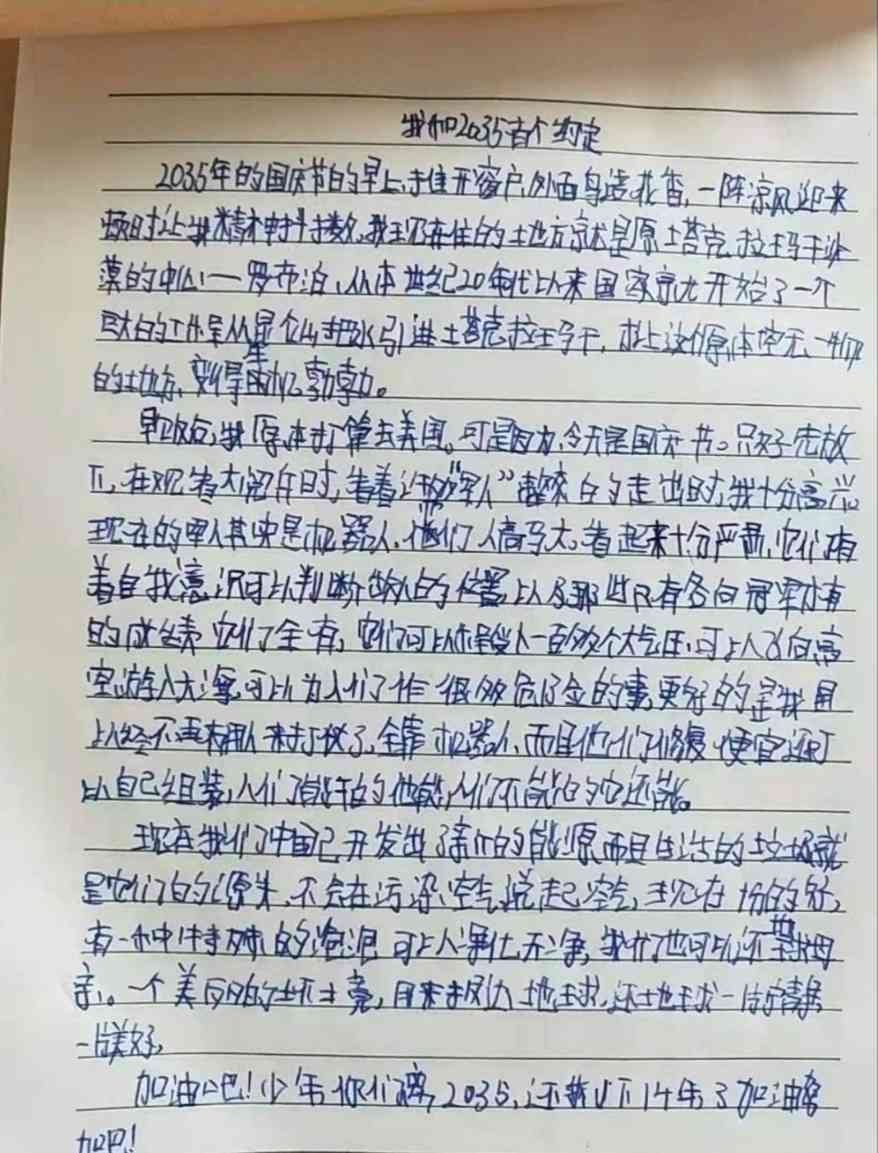 我和2035有个约定
2035年的国庆节的早上,推开窗户,外面鸟语花香,一阵凉风迎来
顿时让我精神抖擞,我现在住的地方就是原塔克拉玛干沙
漠的中心——罗布泊,从本世纪20年代以来国家就开始了一个
巨大的工作是从昆仑山把水引进塔克拉玛干,让这个原本空无一物
的地方,变得生机勃勃。
早饭后,我原本打算去美国,可是因为,今天是国庆节。只好先放
下,在观看大阅兵时,看着的“军人”走出时,我十分高兴
现在的军人其实是机器人,他们人高马大。看起来十分严肃,它们有
着自我意识可以判断敌人的位置以及那些只有各项冠军才有
的成绩它们全有,它们可以承受一百多个大气压,可以飞向高
空游入大海可以为人们作很多危险的事,更好的是我国
以经不再用人来打仗了,全靠机器人,而且他们修复便宜还可
以自己组装,人们能干的他能,人们不能的它还能。
现在我们中国已开发出了新的能源而且生活的垃圾就
是它们的源头,不会在污染空气,说起空气,现在十分的好,
有一种特殊的泡泡可以净化天净,我们也可以还地球母
亲。一个美丽的环境,用来报达地球,还地球一片清
一片美好,
加油吧!少年你们离2035,还剩下14年了加油
加巴!